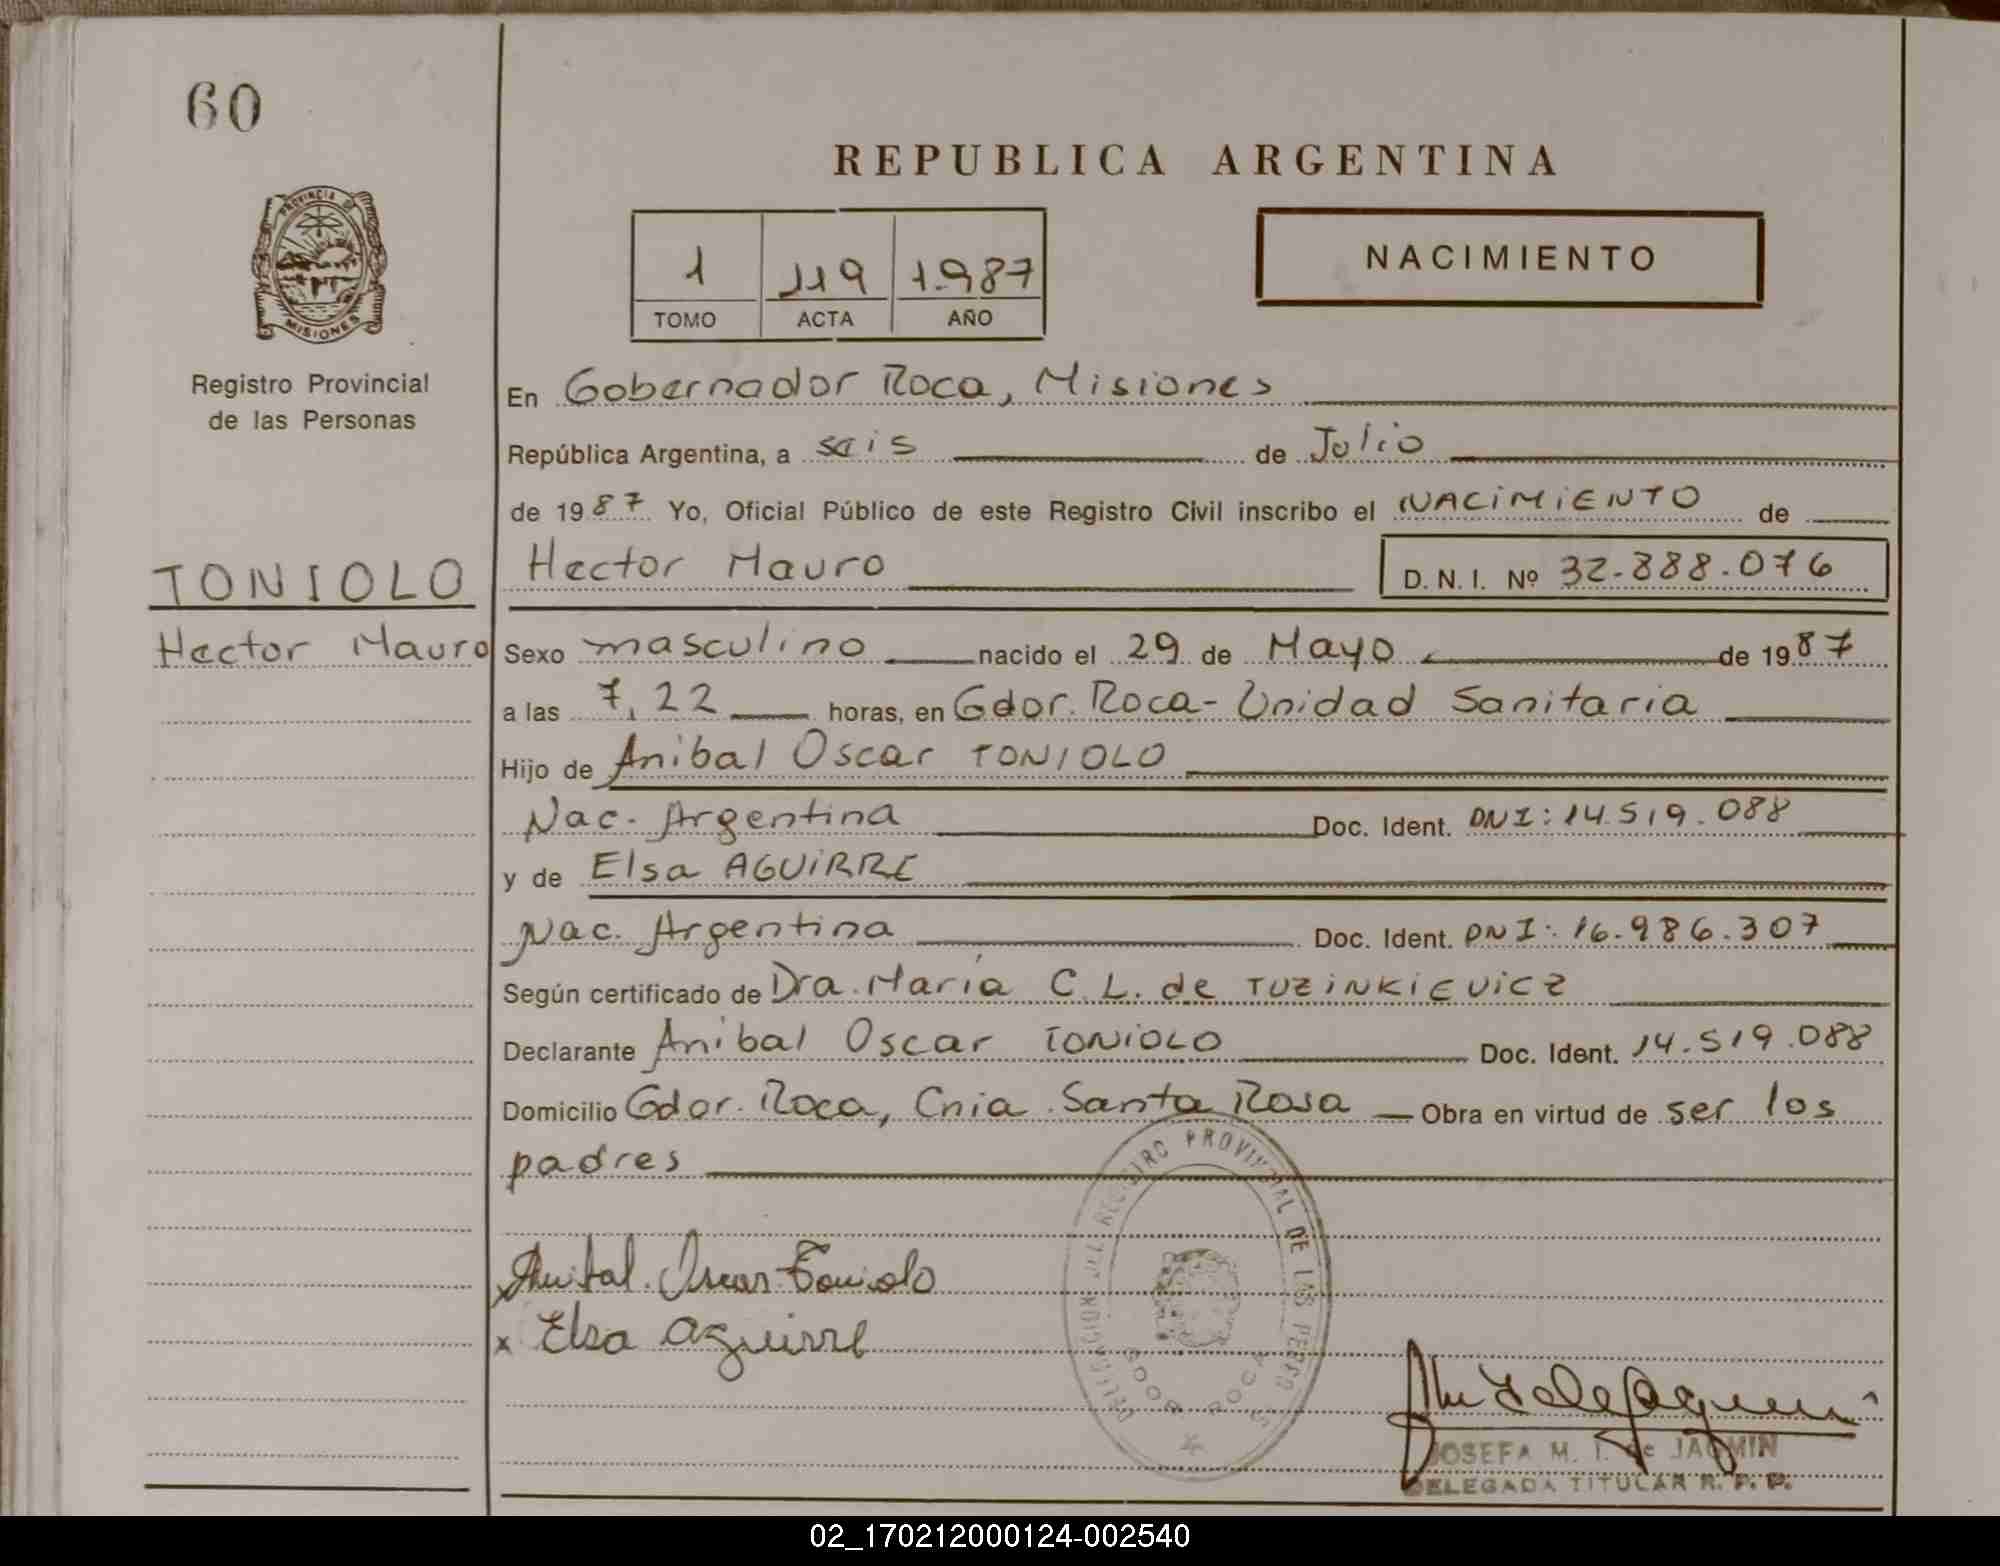 60
REPUBLICA ARGENTINA
PROVINCIA DE
MISIONES
1 119 1.987
TOMO ACTA AÑO
NACIMIENTO
Registro Provincial
de las Personas
En Gobernador Roca, Misiones
República Argentina, a seis de Julio
de 1987 Yo, Oficial Público de este Registro Civil inscribo el NACIMIENTO de
TONIOLO
Hector Mauro D.N.I. Nº 32.888.076
Hector Mauro
Sexo masculino nacido el 29 de Mayo de 1987
a las 7,22 horas, en Gdor. Roca - Unidad Sanitaria
Hijo de Anibal Oscar TONIOLO
Nac. Argentina Doc. Ident. DNI: 14.519.088
y de Elsa AGUIRRE
Nac. Argentina Doc. Ident. DNI: 16.986.307
Según certificado de Dra. María C. L. de TUZINKIEVICZ
Declarante Anibal Oscar TONIOLO Doc. Ident. 14.519.088
Domicilio Gdor. Roca, Cnia. Santa Rosa Obra en virtud de ser los
padres
Anibal Oscar Toniolo
x Elsa Aguirre
DELEGACION DEL REGISTRO PROVINCIAL DE LAS PERSONAS
ROCA
JOSEFA M. I. de JACMIN
DELEGADA TITULAR R. P. P.
02_170212000124-002540